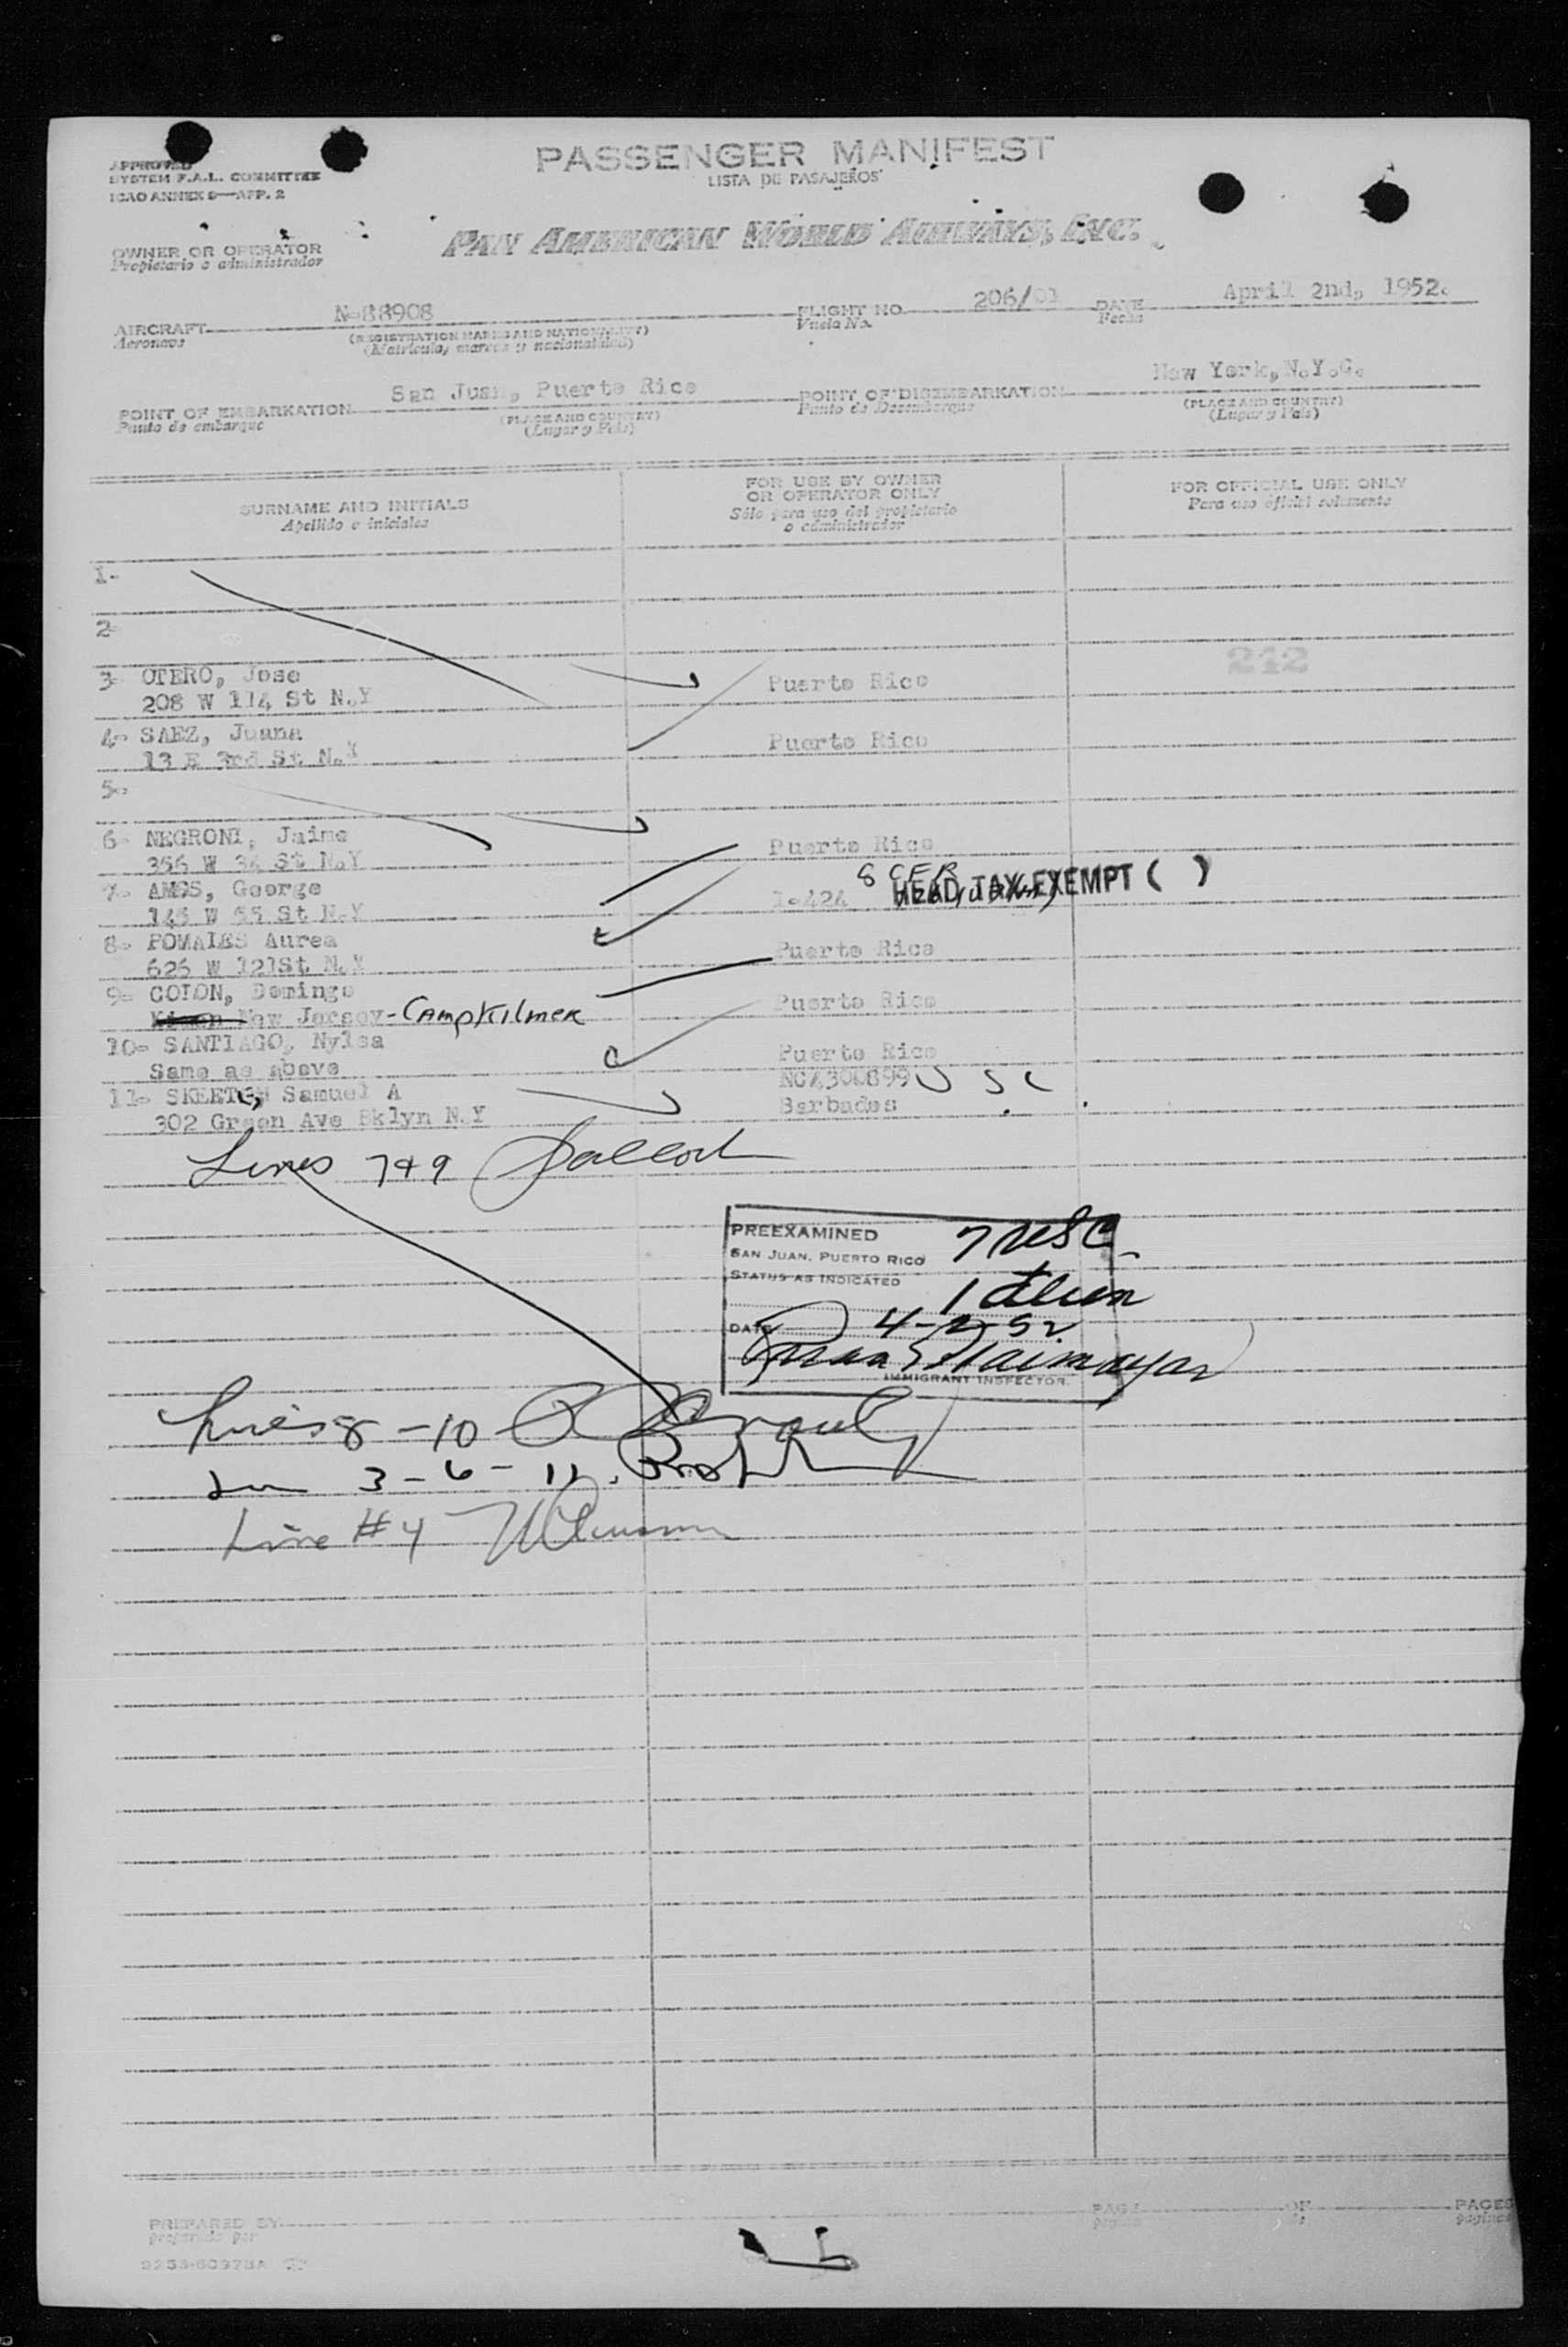 PASSENGER MANIFEST
LISTA DE PASAJEROS
APPROVED
SYSTEM F.A.L. COMMITTEE
ICAO ANNEX 9—APP. 2
PAN AMERICAN WORLD AIRWAYS, INC.
OWNER OR OPERATOR
Propietario o administrador
AIRCRAFT N-88908 FLIGHT NO. 206/01 DATE April 2nd, 1952.
Aeronave (REGISTRATION MARKS AND NATIONALITY) Vuelo No. Fecha
(Matricula, marcas y nacionalidad)
POINT OF EMBARKATION San Juan, Puerto Rico POINT OF DISEMBARKATION New York, N.Y.C.
Punto de embarque (PLACE AND COUNTRY) Punto de Desembarque (PLACE AND COUNTRY)
(Lugar y País) (Lugar y País)
SURNAME AND INITIALS FOR USE BY OWNER OR OPERATOR ONLY FOR OFFICIAL USE ONLY
Apellido e iniciales Sólo para uso del propietario o administrador Para uso oficial solamente
1-
2-
242
3- OTERO, Jose Puerto Rico
208 W 114 St N.Y
4- SAEZ, Juana Puerto Rico
13 E 3rd St N.Y
5-
6- NEGRONI, Jaime Puerto Rico
356 W 34 St N.Y
7- AMOS, George I-424 HEAD TAX EXEMPT ( )
W St N.Y
8- POMALES Aurea Puerto Rico
626 W 121St N.Y
9- COLON, Domingo Puerto Rico
New Jersey - Camp Kilmer
10- SANTIAGO, Nylsa Puerto Rico
Same as above
11- Samuel A USC
302 Green Ave Bklyn N.Y Barbados
Lines 7 & 9
PREEXAMINED 7 USC
SAN JUAN, PUERTO RICO
STATUS AS INDICATED 1 alien
DATE 4-2-52
IMMIGRANT INSPECTOR.
Lines 8 - 10
3 - 6 - 11
Line # 4
PREPARED BY PAGE OF PAGES
preparado por